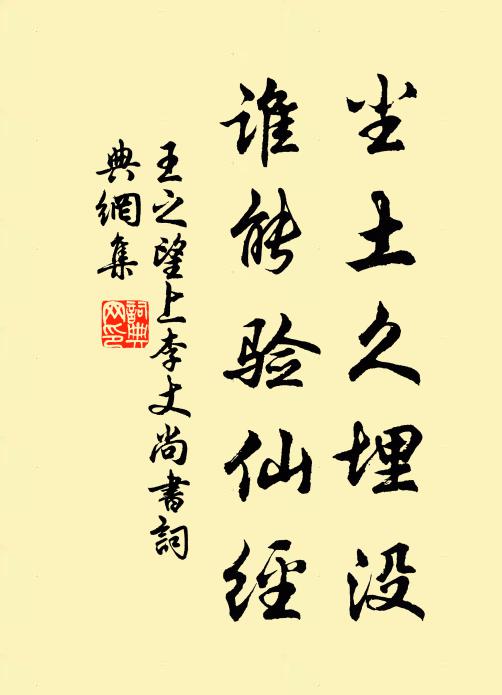 尘土久埋没
谁能验仙经
王之望上李丈尚书词
典網集
詞典网印